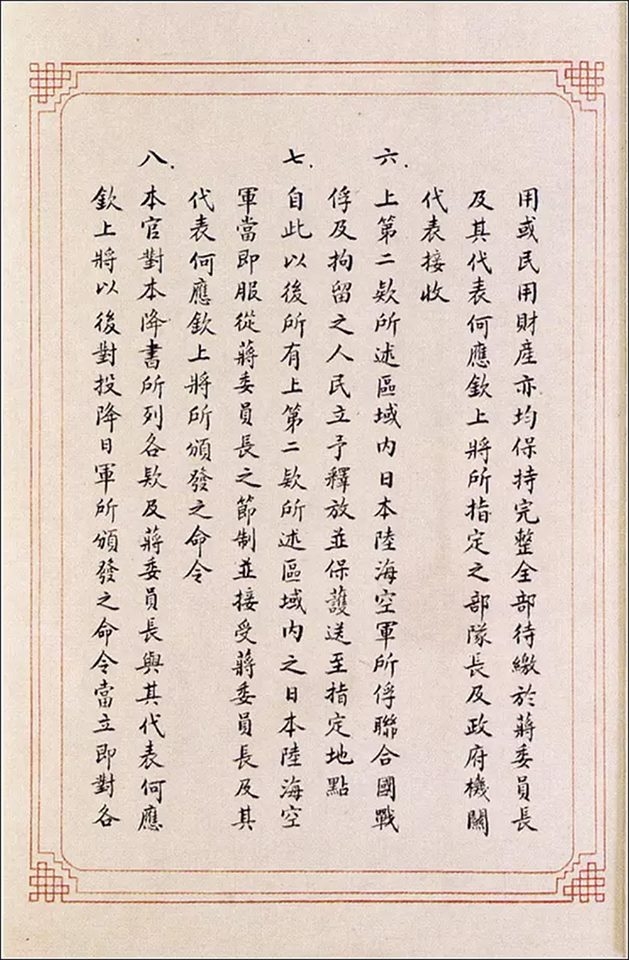 用或民用財產亦均保持完整全部待繳於蔣委員長
及其代表何應欽上將所指定之部隊長及政府機關
代表接收
六．上第二款所述區域內日本陸海空軍所俘聯合國戰
俘及拘留之人民立予釋放並保護送至指定地點
七．自此以後所有上第二款所述區域內之日本陸海空
軍當即服從蔣委員長之節制並接受蔣委員長及其
代表何應欽上將所頒發之命令
八．本官對本降書所列各款及蔣委員長與其代表何應
欽上將以後對投降日軍所頒發之命令當立即對各